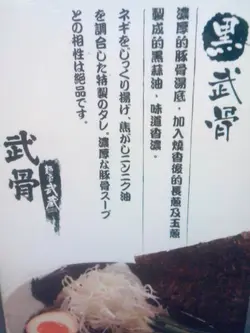 黒武骨
濃厚的豚骨湯底，加入燒香後的長蔥及玉蔥
製成的黑蒜油，味道香濃。
ネギを、じっくり揚げ、焦がしニンニク油
を調合した特製のタレ。濃厚な豚骨スープ
との相性は絶品です。
武骨
武蔵